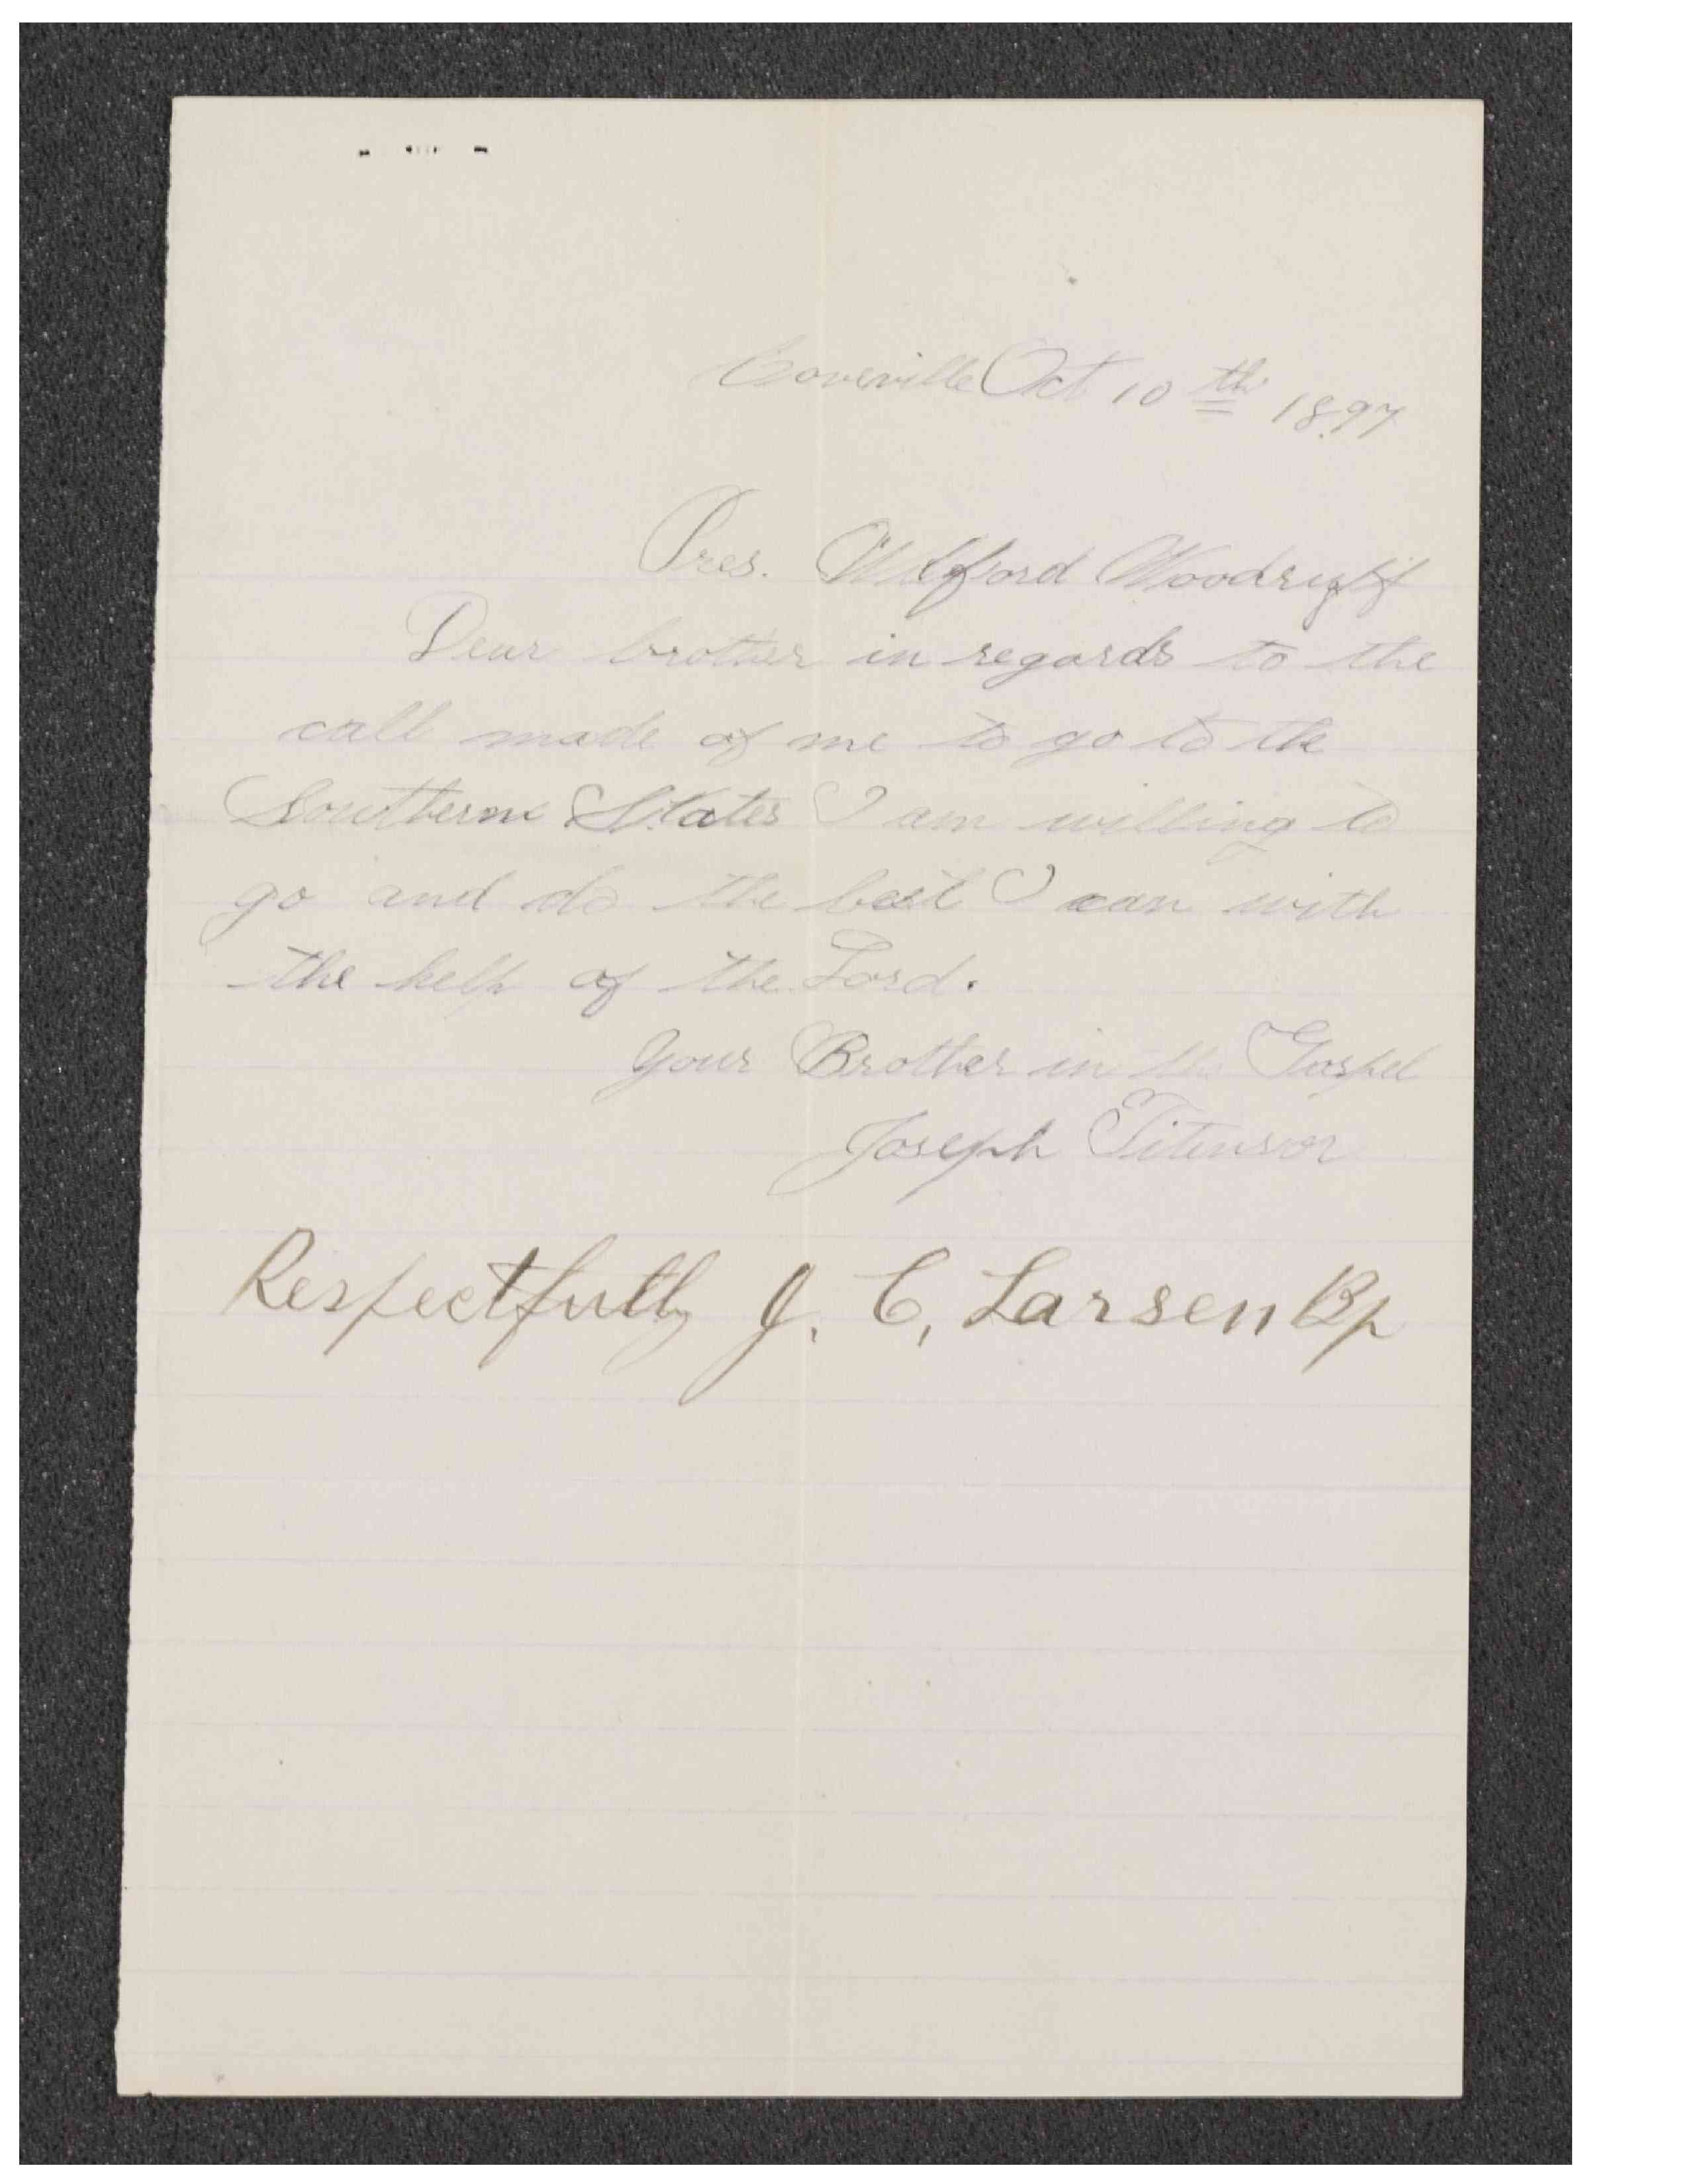 Coveville Oct 10th 1897
Pres. Wilford Woodruff
Dear brother in regards to the
call made of me to go to the
Southern States I am willing to
go and do the best I can with
the help of the Lord.
Your Brother in the Gospel
Joseph Titensor
Respectfully J. C. Larsen Bp